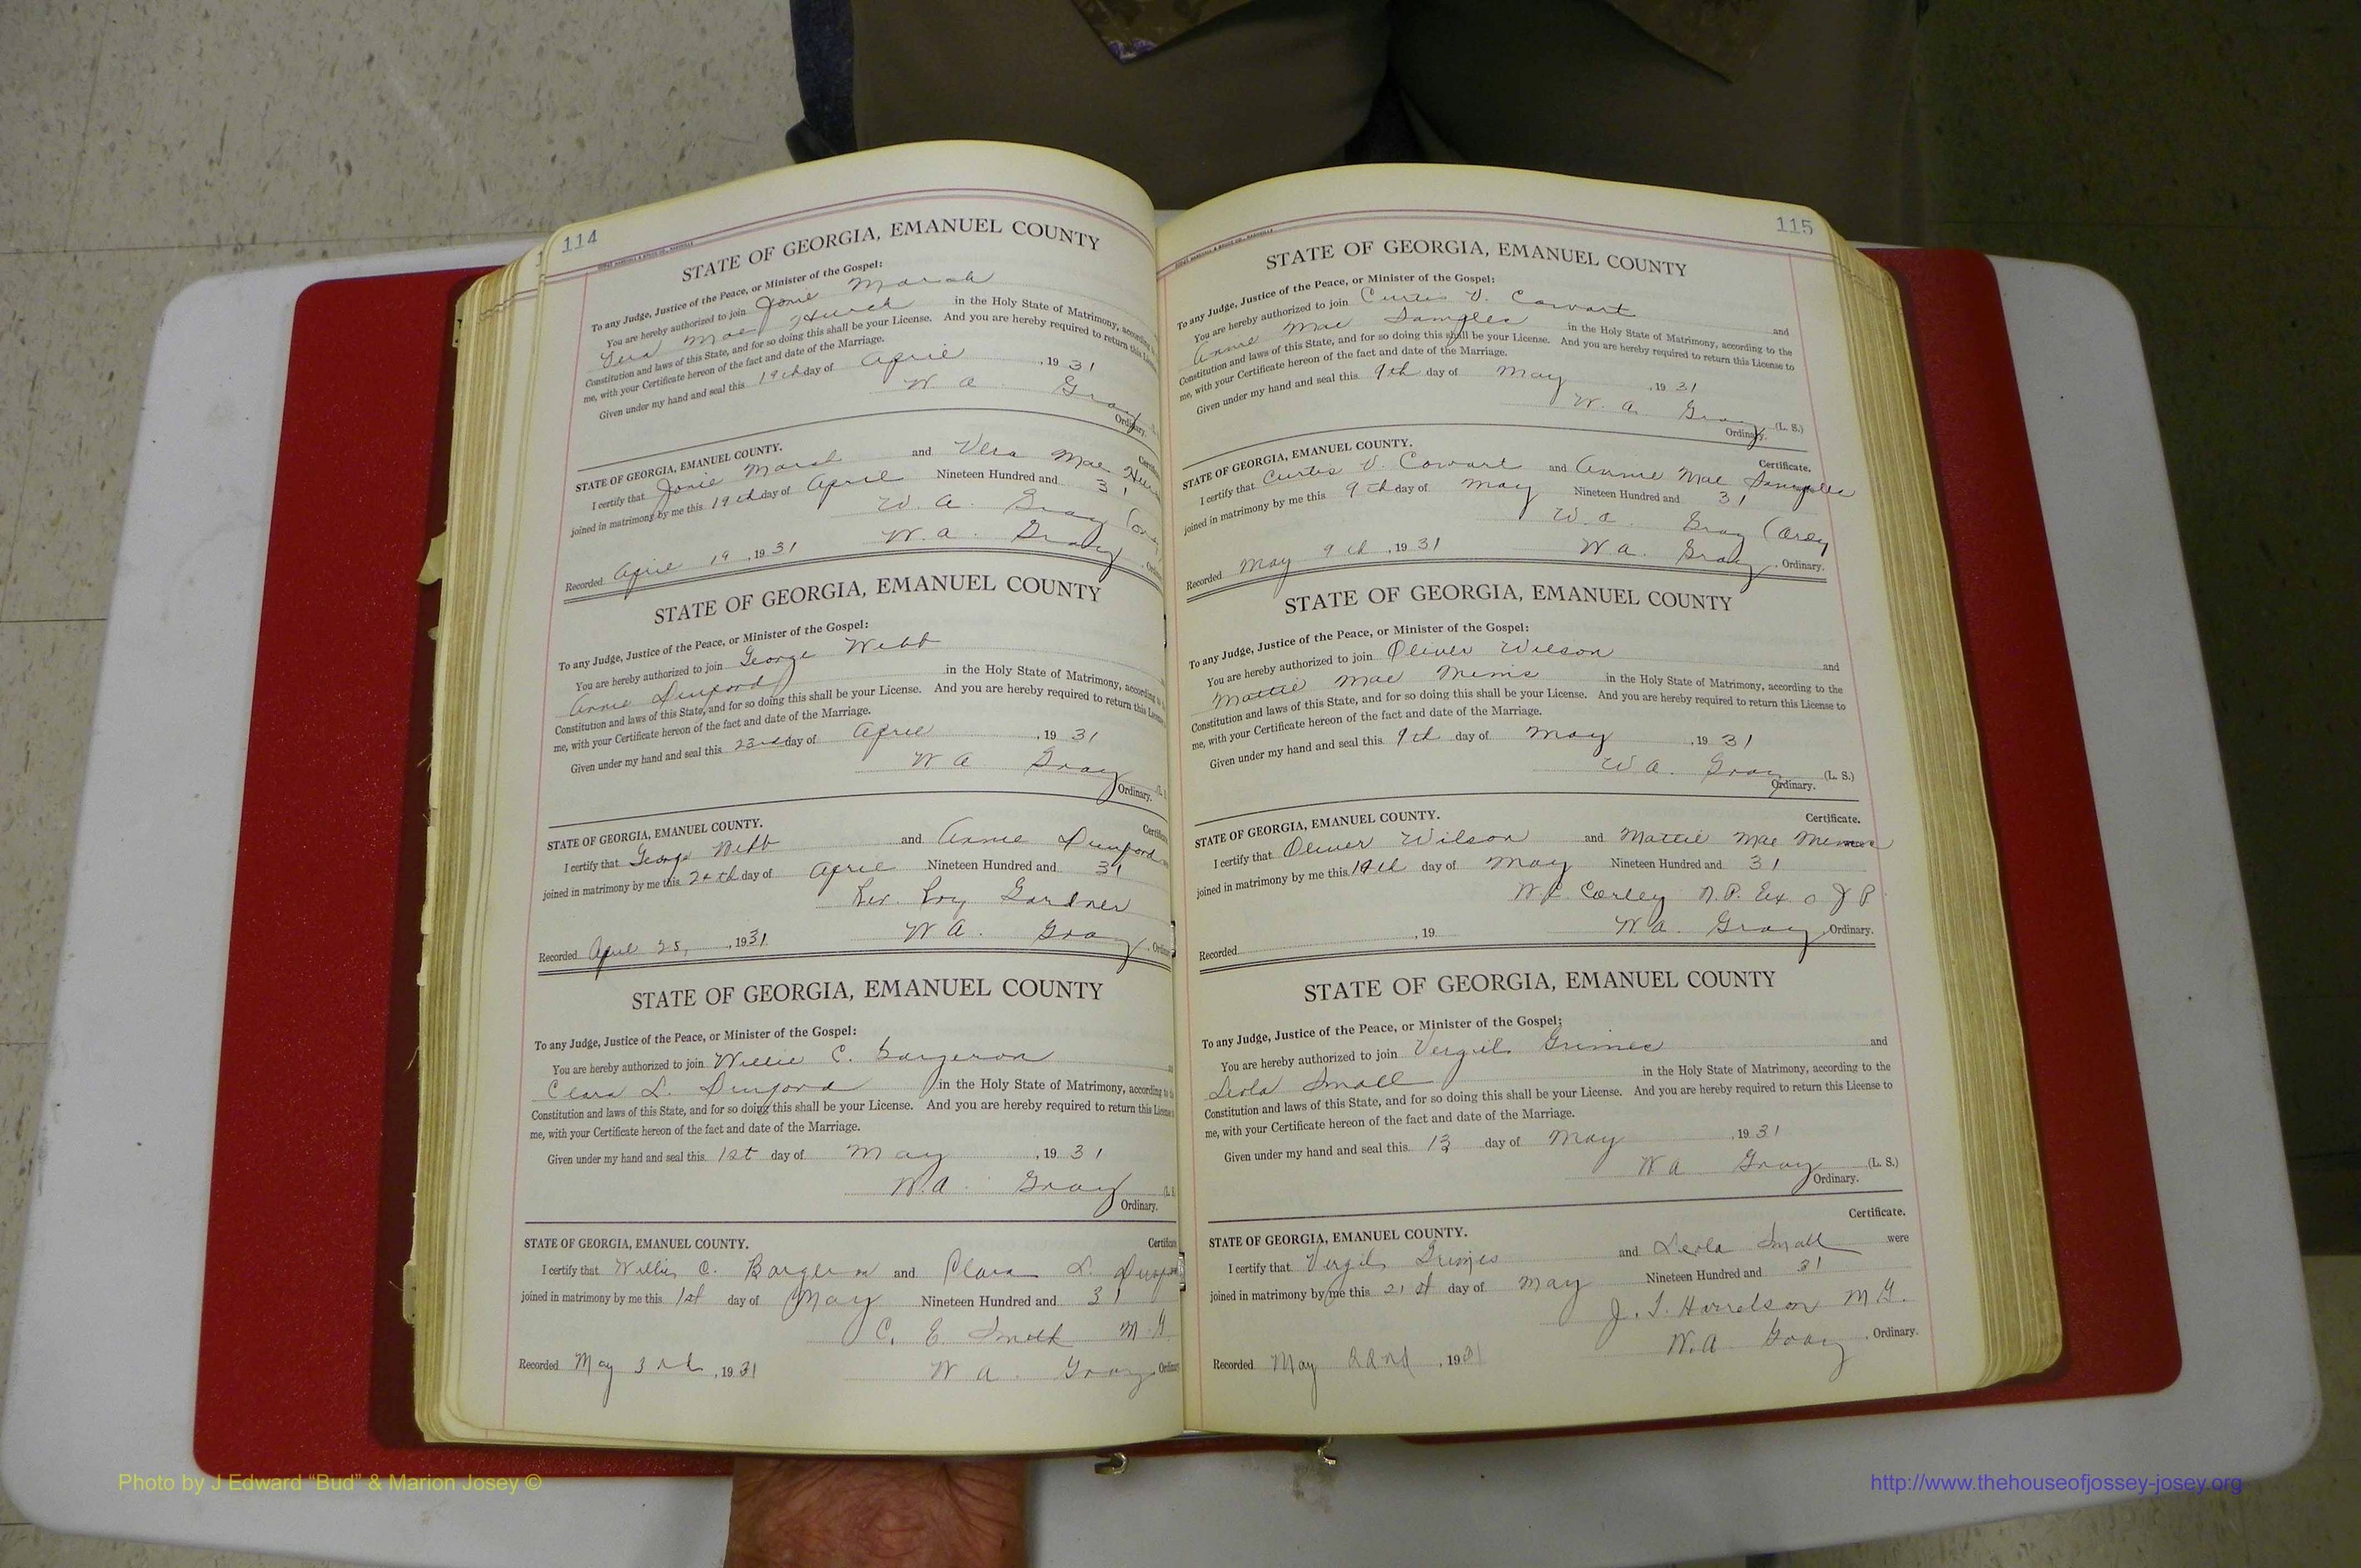 114
STATE OF GEORGIA, EMANUEL COUNTY
To any Judge, Justice of the Peace, or Minister of the Gospel:
You are hereby authorized to join Josie Marsh
Vera Mae in the Holy State of Matrimony, according
Constitution and laws of this State, and for so doing this shall be your License. And you are hereby required to return this
me, with your Certificate hereon of the fact and date of the Marriage.
Given under my hand and seal this 19th day of April , 19 31
W A Gray
Ordinary.
STATE OF GEORGIA, EMANUEL COUNTY.
I certify that Josie Marsh and Vera Mae
joined in matrimony by me this 19th day of April Nineteen Hundred and 31
W. A. Gray
Recorded April 19 , 19 31 W. a. Gray
STATE OF GEORGIA, EMANUEL COUNTY
To any Judge, Justice of the Peace, or Minister of the Gospel:
You are hereby authorized to join George Webb
Annie in the Holy State of Matrimony, according
Constitution and laws of this State, and for so doing this shall be your License. And you are hereby required to return this
me, with your Certificate hereon of the fact and date of the Marriage.
Given under my hand and seal this 23rd day of April , 19 31
W A Gray
Ordinary.
STATE OF GEORGIA, EMANUEL COUNTY.
I certify that George Webb and Annie
joined in matrimony by me this day of April Nineteen Hundred and 31
Rev. Roy Gardner
Recorded April 25, , 19 31 W A. Gray
STATE OF GEORGIA, EMANUEL COUNTY
To any Judge, Justice of the Peace, or Minister of the Gospel:
You are hereby authorized to join Willie C. Bargeron
Clara L. in the Holy State of Matrimony, according
Constitution and laws of this State, and for so doing this shall be your License. And you are hereby required to return this
me, with your Certificate hereon of the fact and date of the Marriage.
Given under my hand and seal this 1st day of May , 19 31
W. A. Gray
Ordinary.
STATE OF GEORGIA, EMANUEL COUNTY.
I certify that Willie C. and Clara L.
joined in matrimony by me this 1st day of May Nineteen Hundred and 31
C. E. Smith M. G.
Recorded May 3rd , 19 31 W A. Gray
115
STATE OF GEORGIA, EMANUEL COUNTY
To any Judge, Justice of the Peace, or Minister of the Gospel:
You are hereby authorized to join Curtis V. Cowart and
Annie Mae Samples in the Holy State of Matrimony, according to the
Constitution and laws of this State, and for so doing this shall be your License. And you are hereby required to return this License to
me, with your Certificate hereon of the fact and date of the Marriage.
Given under my hand and seal this 9th day of May , 19 31
W. A. Gray (L. S.)
Ordinary.
Certificate.
STATE OF GEORGIA, EMANUEL COUNTY.
I certify that Curtis V. Cowart and Annie Mae Samples
joined in matrimony by me this 9th day of May Nineteen Hundred and 31
W. A. Gray (Ordy
Recorded May 9th , 19 31 W A. Gray , Ordinary.
STATE OF GEORGIA, EMANUEL COUNTY
To any Judge, Justice of the Peace, or Minister of the Gospel:
You are hereby authorized to join Oliver Wilson and
Mattie Mae Mims in the Holy State of Matrimony, according to the
Constitution and laws of this State, and for so doing this shall be your License. And you are hereby required to return this License to
me, with your Certificate hereon of the fact and date of the Marriage.
Given under my hand and seal this 9th day of May , 19 31
W A. Gray (L. S.)
Ordinary.
Certificate.
STATE OF GEORGIA, EMANUEL COUNTY.
I certify that Oliver Wilson and Mattie Mae
joined in matrimony by me this day of May Nineteen Hundred and 31
Corley N. P. Ex. o J P
Recorded , 19 W A. Gray , Ordinary.
STATE OF GEORGIA, EMANUEL COUNTY
To any Judge, Justice of the Peace, or Minister of the Gospel:
You are hereby authorized to join Vergil Grimes and
Leola Small in the Holy State of Matrimony, according to the
Constitution and laws of this State, and for so doing this shall be your License. And you are hereby required to return this License to
me, with your Certificate hereon of the fact and date of the Marriage.
Given under my hand and seal this 13 day of May , 19 31
W A Gray (L. S.)
Ordinary.
Certificate.
STATE OF GEORGIA, EMANUEL COUNTY.
I certify that Vergil Grimes and Leola Small were
joined in matrimony by me this 21st day of May Nineteen Hundred and 31
J. T. Harrelson M. G.
Recorded May 22nd , 19 31 W. A Gray , Ordinary.
Photo by J Edward “Bud” & Marion Josey ©
http://www.thehouseofjossey-josey.org